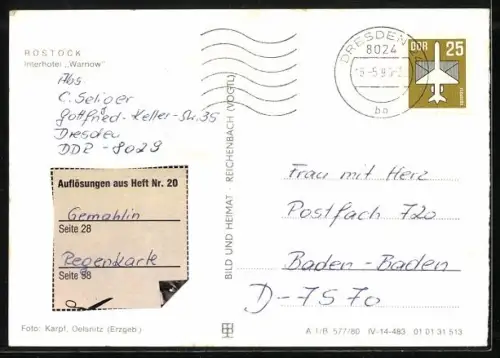 ROSTOCK
Interhotel „Warnow"
Abs.
C. Seliger
Gottfried-Keller-Str. 35
Dresden
DDR-8029
Auflösungen aus Heft Nr. 20
Gemahlin
Seite 28
Regenkarte
Seite 58
Foto: Karpf, Oelsnitz (Erzgeb.)
BILD UND HEIMAT · REICHENBACH (VOGTL)
DRESDEN
8024
bn
DDR 25
Frau mit Herz
Postfach 720
Baden-Baden
D-7570
A 1/B 577/80 IV-14-483 01 01 31 513